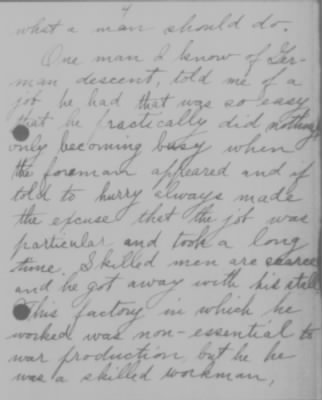 4
what a man should do.
One man I know of Ger-
man descent, told me of a
job he had that was so easy
that he practically did nothing
only becoming busy when
the foreman appeared and if
told to hurry always made
the excuse that the job was
particular and took a long
time. Skilled men are scarce
and he got away with his stall
This factory in which he
worked was non-essential to
war production, but he he
was a skilled workman,